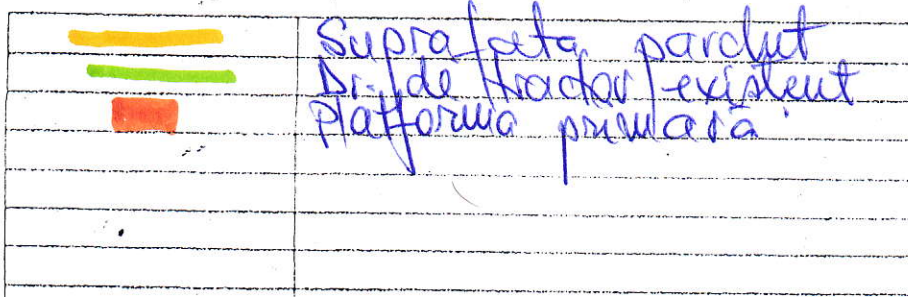 Suprafața parchet
Dr. de tractor existent
Platforma primară